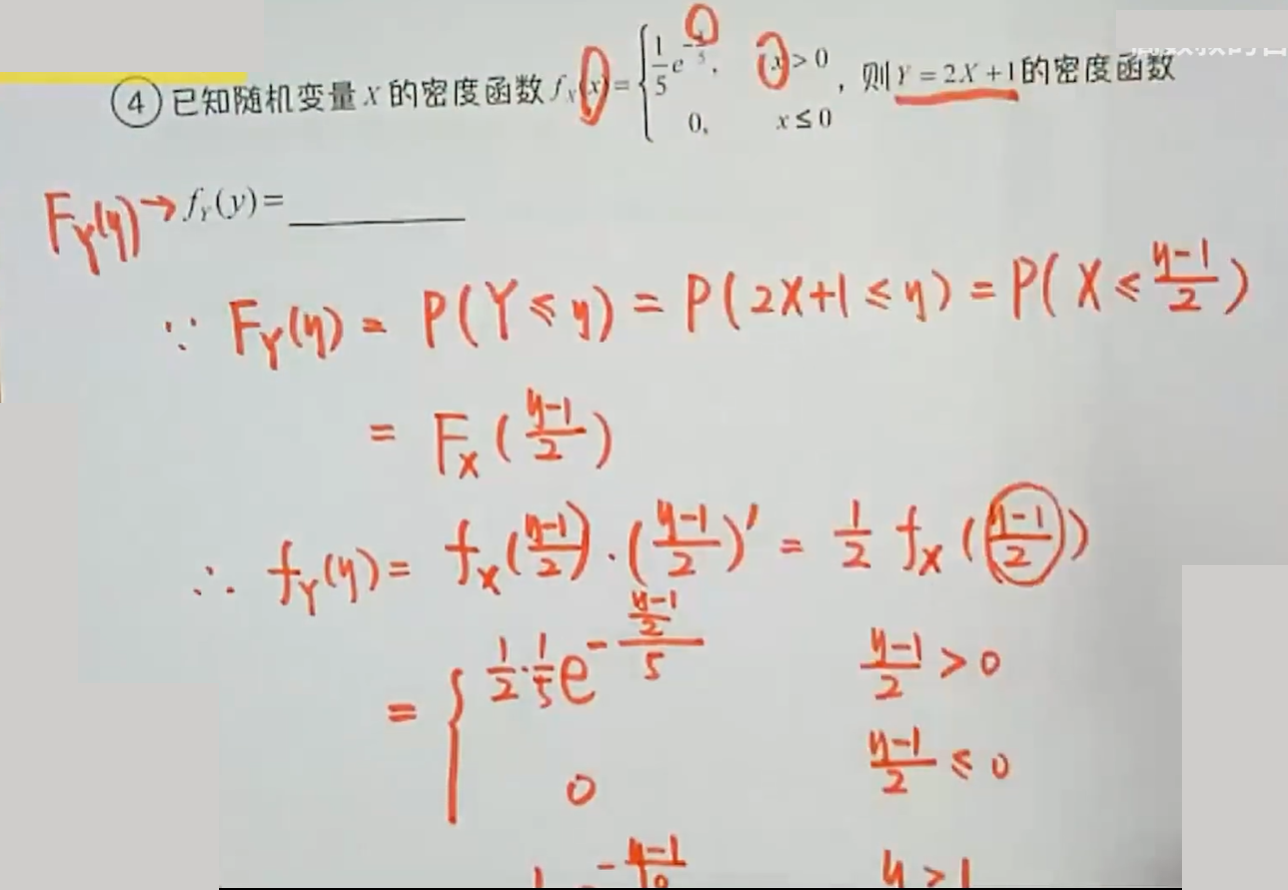 ④ 已知随机变量 X 的密度函数 f_X(x) = { 1/5 e^{-x/5}, x > 0; 0, x ≤ 0 , 则 Y = 2X + 1 的密度函数
F_Y(y) → f_Y(y) = ________
∵ F_Y(y) = P(Y ≤ y) = P(2X+1 ≤ y) = P(X ≤ (y-1)/2)
= F_X((y-1)/2)
∴ f_Y(y) = f_X((y-1)/2) · ((y-1)/2)' = 1/2 f_X((y-1)/2)
= { 1/2 · 1/5 e^{-((y-1)/2)/5} (y-1)/2 > 0
0 (y-1)/2 ≤ 0
y > 1